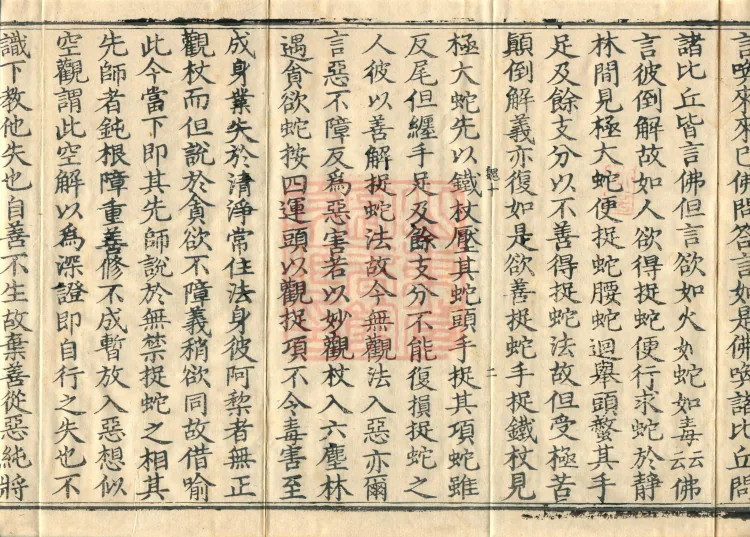 言喚來來已佛問答言如是佛喚諸比丘問
諸比丘皆言佛但言欲如火如蛇如毒云云佛
言彼倒解故如人欲得捉蛇便行求蛇於靜
林間見極大蛇便捉蛇腰蛇迴舉頭螫其手
足及餘支分以不善得捉蛇法故但受極苦
顛倒解義亦復如是欲善捉蛇手捉鐵杖見
極大蛇先以鐵杖壓其蛇頭手捉其項蛇雖
反尾但纏手足及餘支分不能復損捉蛇之
人彼以善解捉蛇法故今無觀法入惡亦爾
言惡不障反為惡害若以妙觀杖入六塵林
遇貪欲蛇按四運頭以觀捉項不令毒害至
成身業失於清淨常住法身彼阿棃者無正
觀杖而但說於貪欲不障義稍欲同故借喻
此今當下即其先師說於無禁捉蛇之相其
先師者鈍根障重善修不成暫放入惡想似
空觀謂此空解以為深證即自行之失也不
識下教他失也自善不生故棄善從惡純將